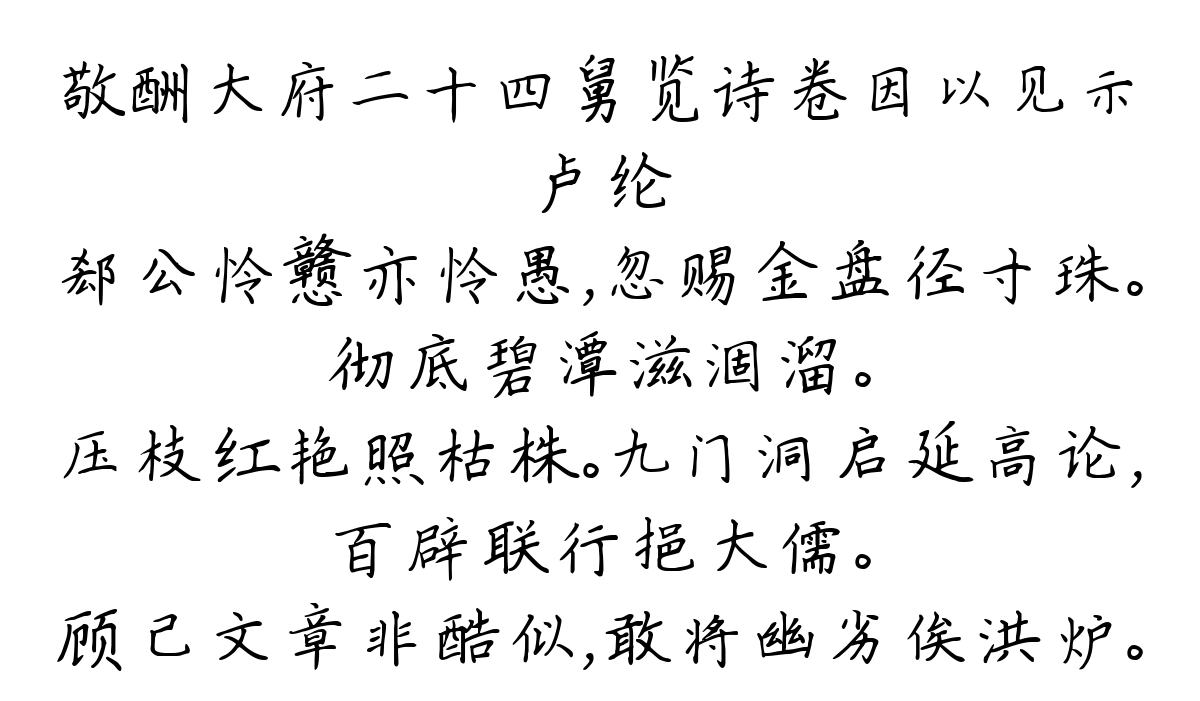 敬酬大府二十四舅览诗卷因以见示
卢纶
郄公怜戆亦怜愚,忽赐金盘径寸珠。
彻底碧潭滋涸溜。
压枝红艳照枯株。九门洞启延高论,
百辟联行挹大儒。
顾己文章非酷似,敢将幽劣俟洪炉。